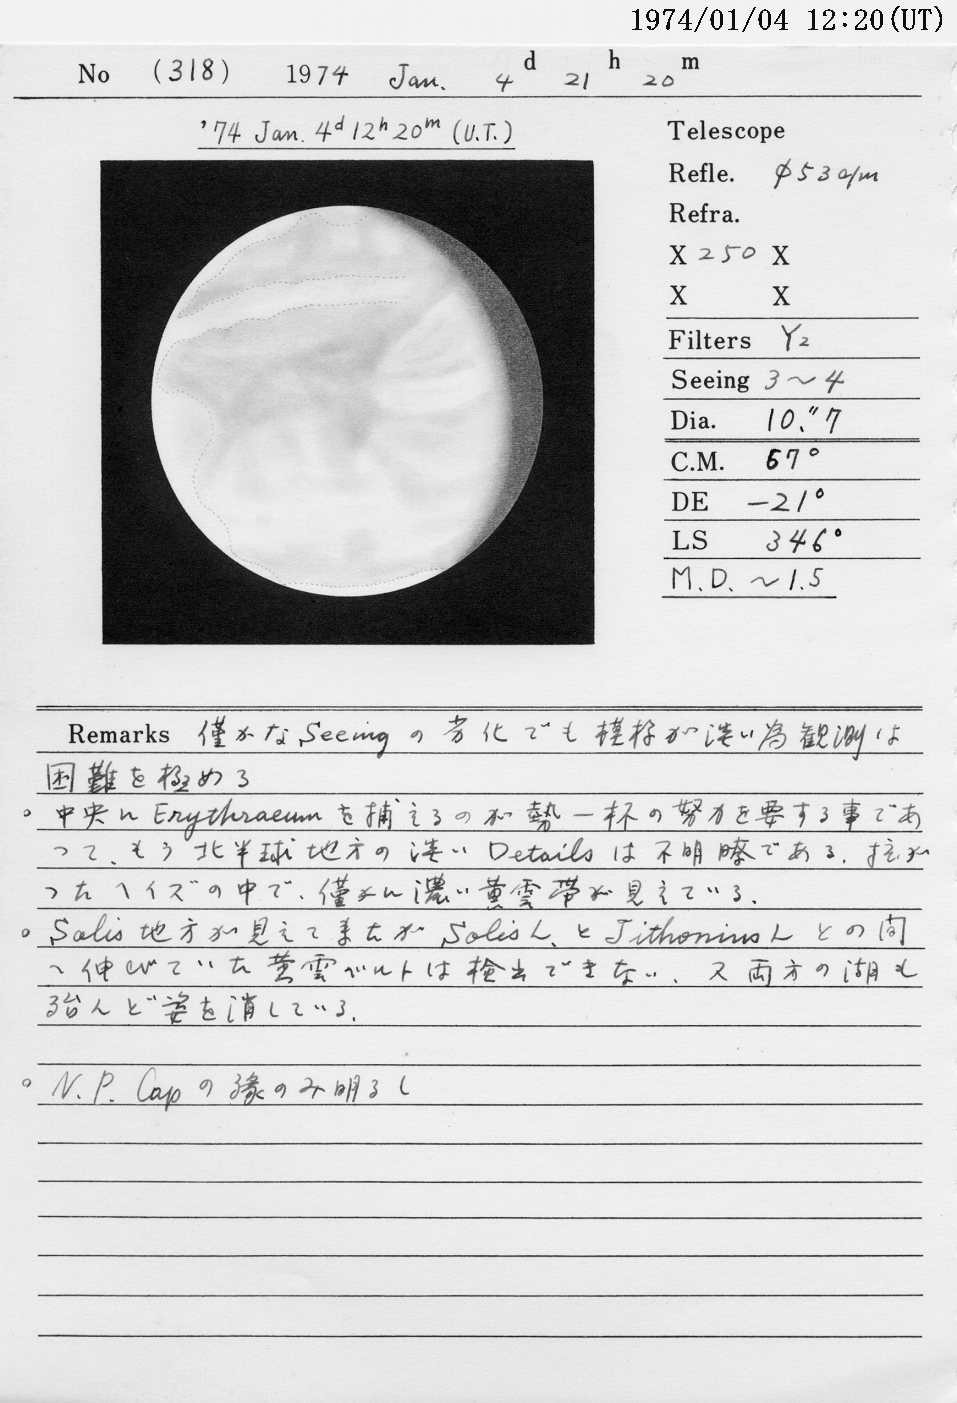 1974/01/04 12:20(UT)
No (318) 1974 Jan. 4 d 21 h 20 m
'74 Jan. 4d 12h 20m (U.T.)
Telescope
Refle. φ53c/m
Refra.
X 250 X
X X
Filters Y2
Seeing 3～4
Dia. 10."7
C.M. 67°
DE -21°
LS 346°
M.D. ～1.5
Remarks 僅かなSeeingの劣化でも模様が淡い為観測は
困難を極める
。中央にErythraeumを捕えるのが勢一杯の努力を要する事であ
って、もう北半球地方の淡いDetailsは不明瞭である。拡が
ったヘイズの中で、僅かに濃い黄雲帯が見えている。
。Solis地方が見えてきたがSolis L.とTithonius Lとの間
へ伸びていた黄雲ベルトは検出できない、又両方の湖も
殆んど姿を消している。
。N.P. Capの縁のみ明るし